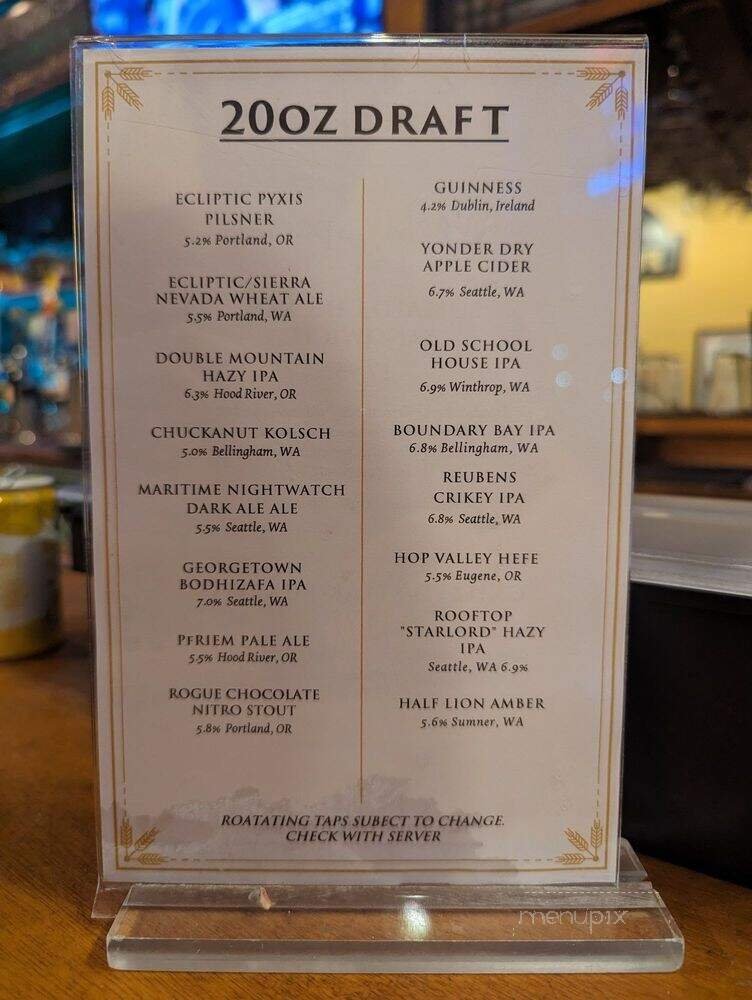 20OZ DRAFT
ECLIPTIC PYXIS
PILSNER
5.2% Portland, OR
ECLIPTIC/SIERRA
NEVADA WHEAT ALE
5.5% Portland, WA
DOUBLE MOUNTAIN
HAZY IPA
6.3% Hood River, OR
CHUCKANUT KOLSCH
5.0% Bellingham, WA
MARITIME NIGHTWATCH
DARK ALE ALE
5.5% Seattle, WA
GEORGETOWN
BODHIZAFA IPA
7.0% Seattle, WA
PFRIEM PALE ALE
5.5% Hood River, OR
ROGUE CHOCOLATE
NITRO STOUT
5.8% Portland, OR
GUINNESS
4.2% Dublin, Ireland
YONDER DRY
APPLE CIDER
6.7% Seattle, WA
OLD SCHOOL
HOUSE IPA
6.9% Winthrop, WA
BOUNDARY BAY IPA
6.8% Bellingham, WA
REUBENS
CRIKEY IPA
6.8% Seattle, WA
HOP VALLEY HEFE
5.5% Eugene, OR
ROOFTOP
"STARLORD" HAZY
IPA
Seattle, WA 6.9%
HALF LION AMBER
5.6% Sumner, WA
ROATATING TAPS SUBECT TO CHANGE.
CHECK WITH SERVER
menupix